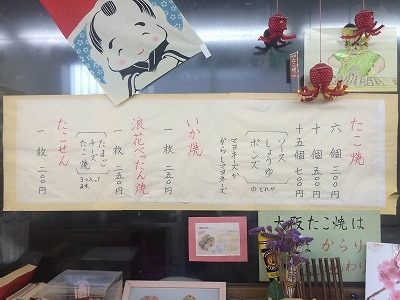 たこ焼
六個 三〇〇円
十個 五〇〇円
十五個 七〇〇円
ソース
しょうゆ
ポンズ
のどれか
マヨネーズか
からしマヨネーズ
いか焼
一枚 二五〇円
浪花ぺったん焼
一枚 二五〇円
たまご
チーズ
たこ焼
3つ入ってます
たこせん
一枚 二〇〇円
大阪たこ焼は
からり
わり